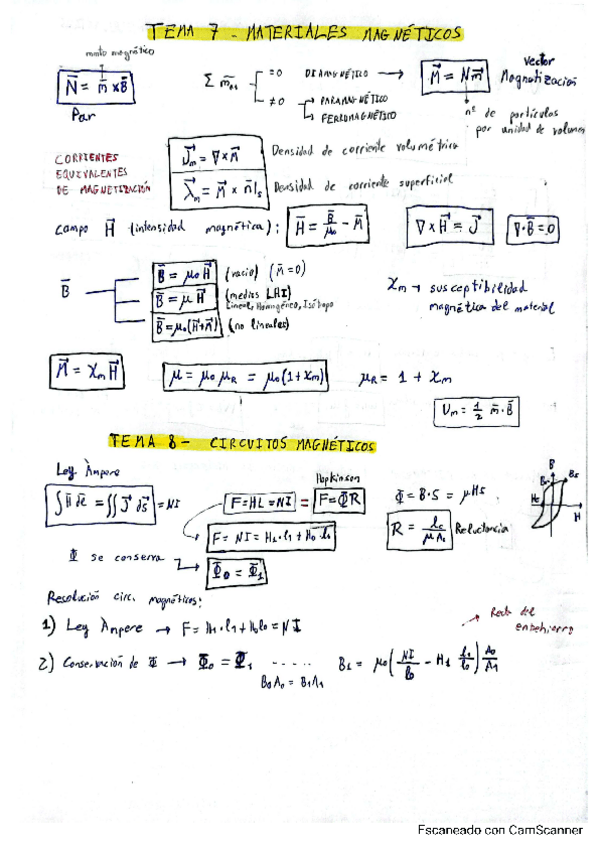 TEMA 7 - MATERIALES MAGNÉTICOS
mnto magnético
N⃗ = m̄ × B̄
Par
Σ m̄
=0 DIAMAGNÉTICO →
≠0 → PARAMAGNÉTICO
→ FERROMAGNÉTICO
M⃗ = N m⃗
Vector Magnetización
nº de partículas
por unidad de volumen
CORRIENTES
EQUIVALENTES
DE MAGNETIZACIÓN
J⃗m = ∇ × M⃗
Densidad de corriente volumétrica
λ⃗m = M⃗ × n̄|s
Densidad de corriente superficial
Campo H⃗ (intensidad magnética):
H̄ = B̄/μ0 - M̄
∇ × H⃗ = J⃗
∇·B̄ = 0
B̄
B̄ = μ0 H⃗ (vacío) (M̄ = 0)
B̄ = μ H⃗ (medios LHI)
Lineal, Homogéneo, Isótropo
B̄ = μ0(H⃗+M⃗) (no lineales)
χm → susceptibilidad
magnética del material
M⃗ = χm H⃗
μ = μ0 μR = μ0(1+χm)
μR = 1 + χm
Um = 1/2 m̄·B̄
TEMA 8 - CIRCUITOS MAGNÉTICOS
Ley Àmpere
∫H̄ dℓ̄ = ∬J⃗ ds⃗ = NI
Hopkinson
F = HL = NI = F = ΦR
F = NI = H1·l1 + H0·l0
Φ = B·S = μHS
R = lc/μA
Reluctancia
B
H
Φ se conserva →
Φ0 = Φ1
Resolución circ. magnéticos:
1) Ley Àmpere → F = H1·l1 + H0l0 = NI
→ Recta del
entrehierro
2) Conservación de Φ → Φ0 = Φ1 .....
B1 = μ0(NI/l0 - H1 l1/l0) A0/A1
B0A0 = B1A1
Escaneado con CamScanner